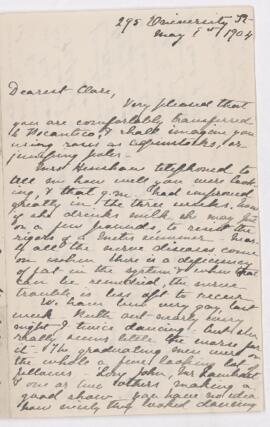 295 University St
May 1st 1904
Dearest Clare,
Very pleased that
you are comfortably transferred
to & shall imagine you
using roses as or
jumping poles –
Mrs telephoned to
tell me how well you were look-
ing, & that had improved
greatly in the three weeks. Now
if she drinks milk she may put
on a few pounds, to resist the
rigors of summer –
all the nerve diseases come
on when there is a deficiency
of fat in the system & when that
can be remedied, the nerve
trouble is less apt to recur
We have been very gay last
week Ruth out nearly every
night & twice dancing – but she
really seems little the worse for
it – The graduating men were on
the whole a fine looking lot of
fellows – John, Mr
& one or two others making a
good show – you have no idea
how nicely they looked dancing